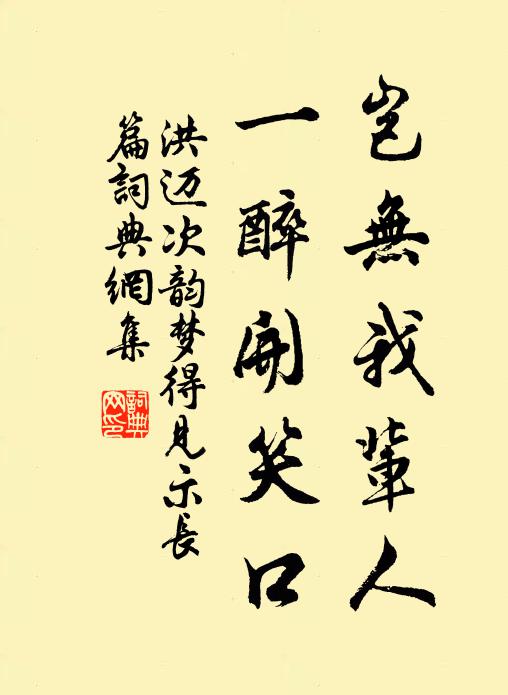 豈無我輩人
一醉開笑口
洪迈次韵梦得見示長
篇詞典網集
詞典网印